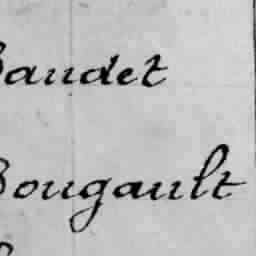 Baudet
Bougault